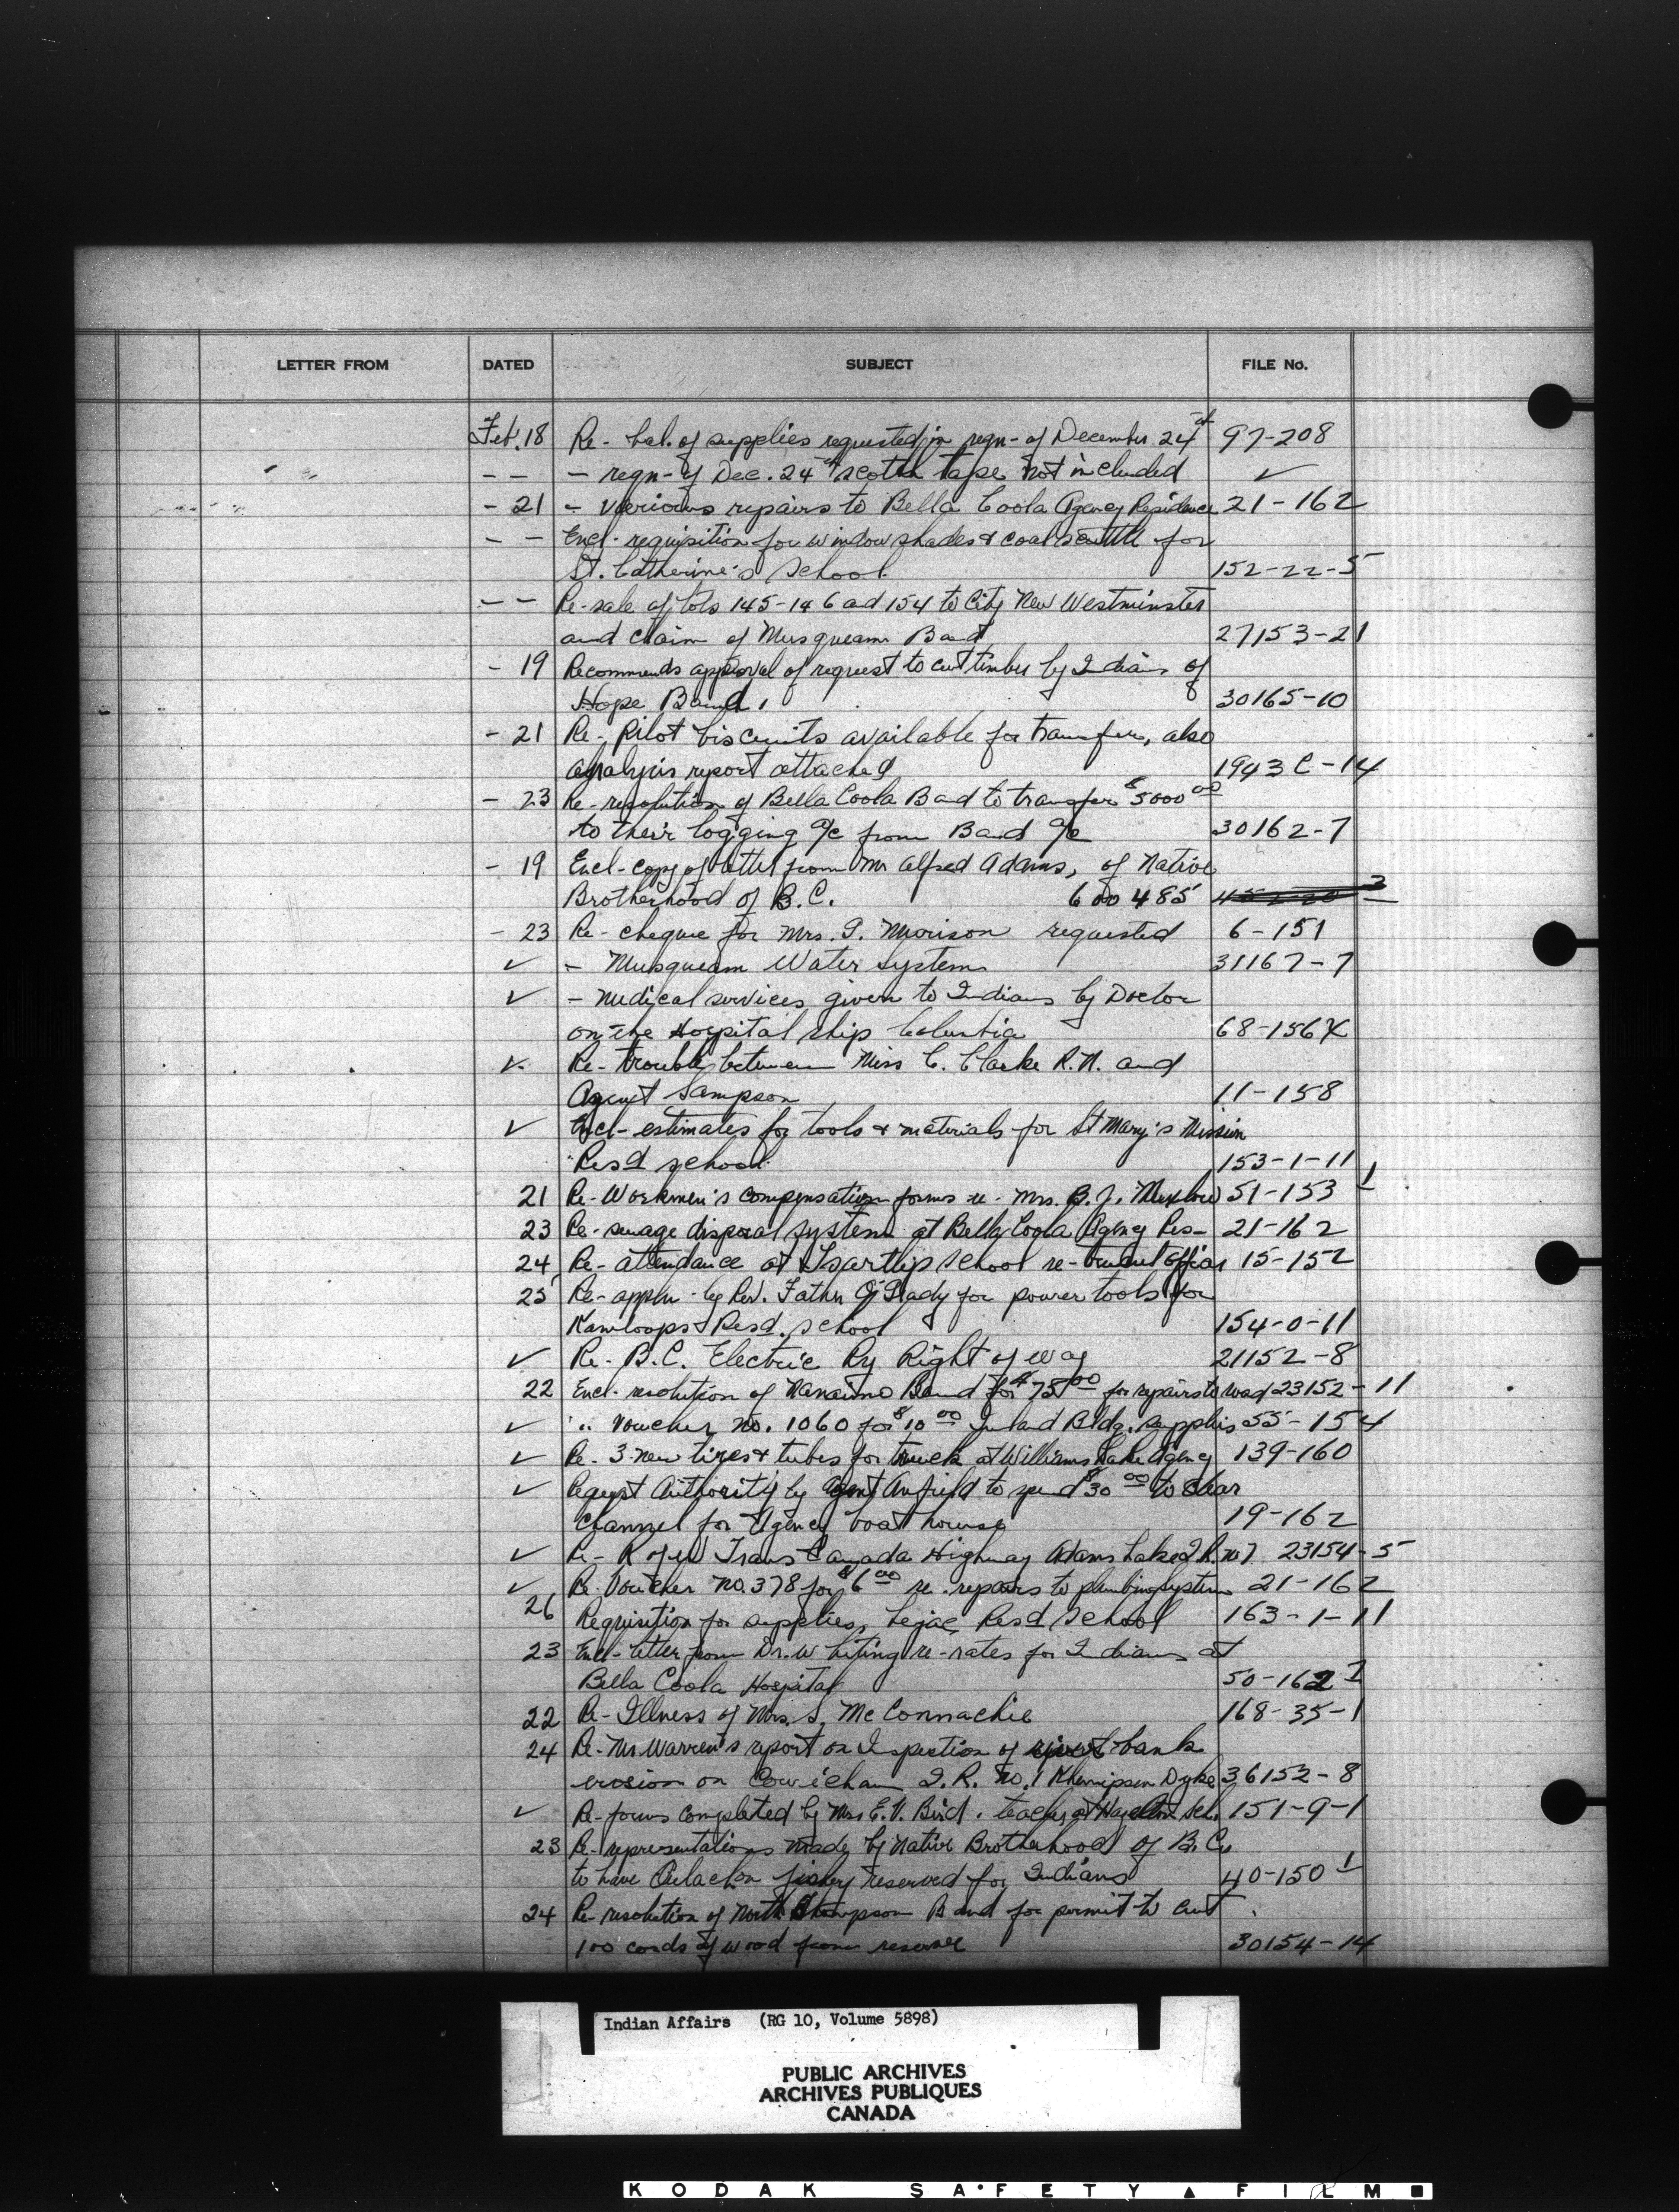 LETTER FROM DATED SUBJECT FILE No.
Feb. 18 Re- bal. of supplies requested in reqn- of December 24th 97-208
- - - reqn- of Dec. 24th scotch tape not included ✓
- 21 - various repairs to Bella Coola Agency Residence 21-162
- - Encl- requisition for window shades & coal scuttle for
St. Catherine's School. 152-22-5
- - Re-sale of lots 145-146 ad 154 to City New Westminster
and claim of Musqueam Band 27153-21
- 19 Recommends approval of request to cut timber by Indians of
Hope Band. 30165-10
- 21 Re- Pilot biscuits available for transfer, also
analysis report attached 1943C-14
- 23 Re-resolution of Bella Coola Band to transfer $5000 00
to their logging a/c from Band a/c 30162-7
- 19 Encl-copy of letter from Mr Alfred Adams, of Native
Brotherhood of B.C. 600 485
- 23 Re- cheque for Mrs. G. Morison requested 6-151
✓ - Musqueam Water System 31167-7
✓ - medical services given to Indians by Doctor
on the Hospital ship Columbia 68-156X
✓ Re- trouble between Miss C. Clarke R.N. and
Agent Sampson 11-158
✓ Encl- estimates for tools & materials for St Mary's Mission
Resd school. 153-1-11
21 Re-Workmen's Compensation forms re- Mrs. B. J. 51-153 1
23 Re- sewage disposal system at Bella Coola Agency Res- 21-162
24 Re- attendance at Tsartlip School re-truant officer 15-152
25 Re- appln- by Rev. Father O'Grady for power tools for
Kamloops Resd. School 154-0-11
✓ Re- B.C. Electric Ry Right of way 21152-8
22 Encl- resolution of Nanaimo Band for $75 00 for repairs to road 23152-11
✓ " Voucher No. 1060 for $10 00 Inland Bldg. supplies 55-154
✓ Re- 3 new tires & tubes for truck at Williams Lake Agency 139-160
✓ Request Authority by Agent Anfield to spend $30 00 to clear
channel for Agency boat house 19-162
✓ Re- R of W Trans Canada Highway Adams Lake I.R. No 7 23154-5
✓ Re- Voucher No. 378 for $6 00 re- repairs to plumbing system 21-162
26 Requisition for supplies, Lejac Resd School 163-1-11
23 Encl- letter from Dr. Whiting re-rates for Indians at
Bella Coola Hospital 50-162 1
22 Re- Illness of Mrs. S. McConnachie 168-35-1
24 Re- Mr Warren's report on Inspection of river bank
erosion on Cowichan I.R. No. 1 Khenipsen Dyke 36152-8
✓ Re- forms completed by Mrs E. V. Bird. teacher at Hazelton Sch. 151-9-1
23 Re- representations made by Native Brotherhood of B.C.
to have Oulachon fishery reserved for Indians 40-150 1
24 Re- resolution of North Thompson Band for permit to cut
100 cords of wood from reserve 30154-14
Indian Affairs (RG 10, Volume 5898)
PUBLIC ARCHIVES
ARCHIVES PUBLIQUES
CANADA
KODAK SAFETY ▲ FILM ■